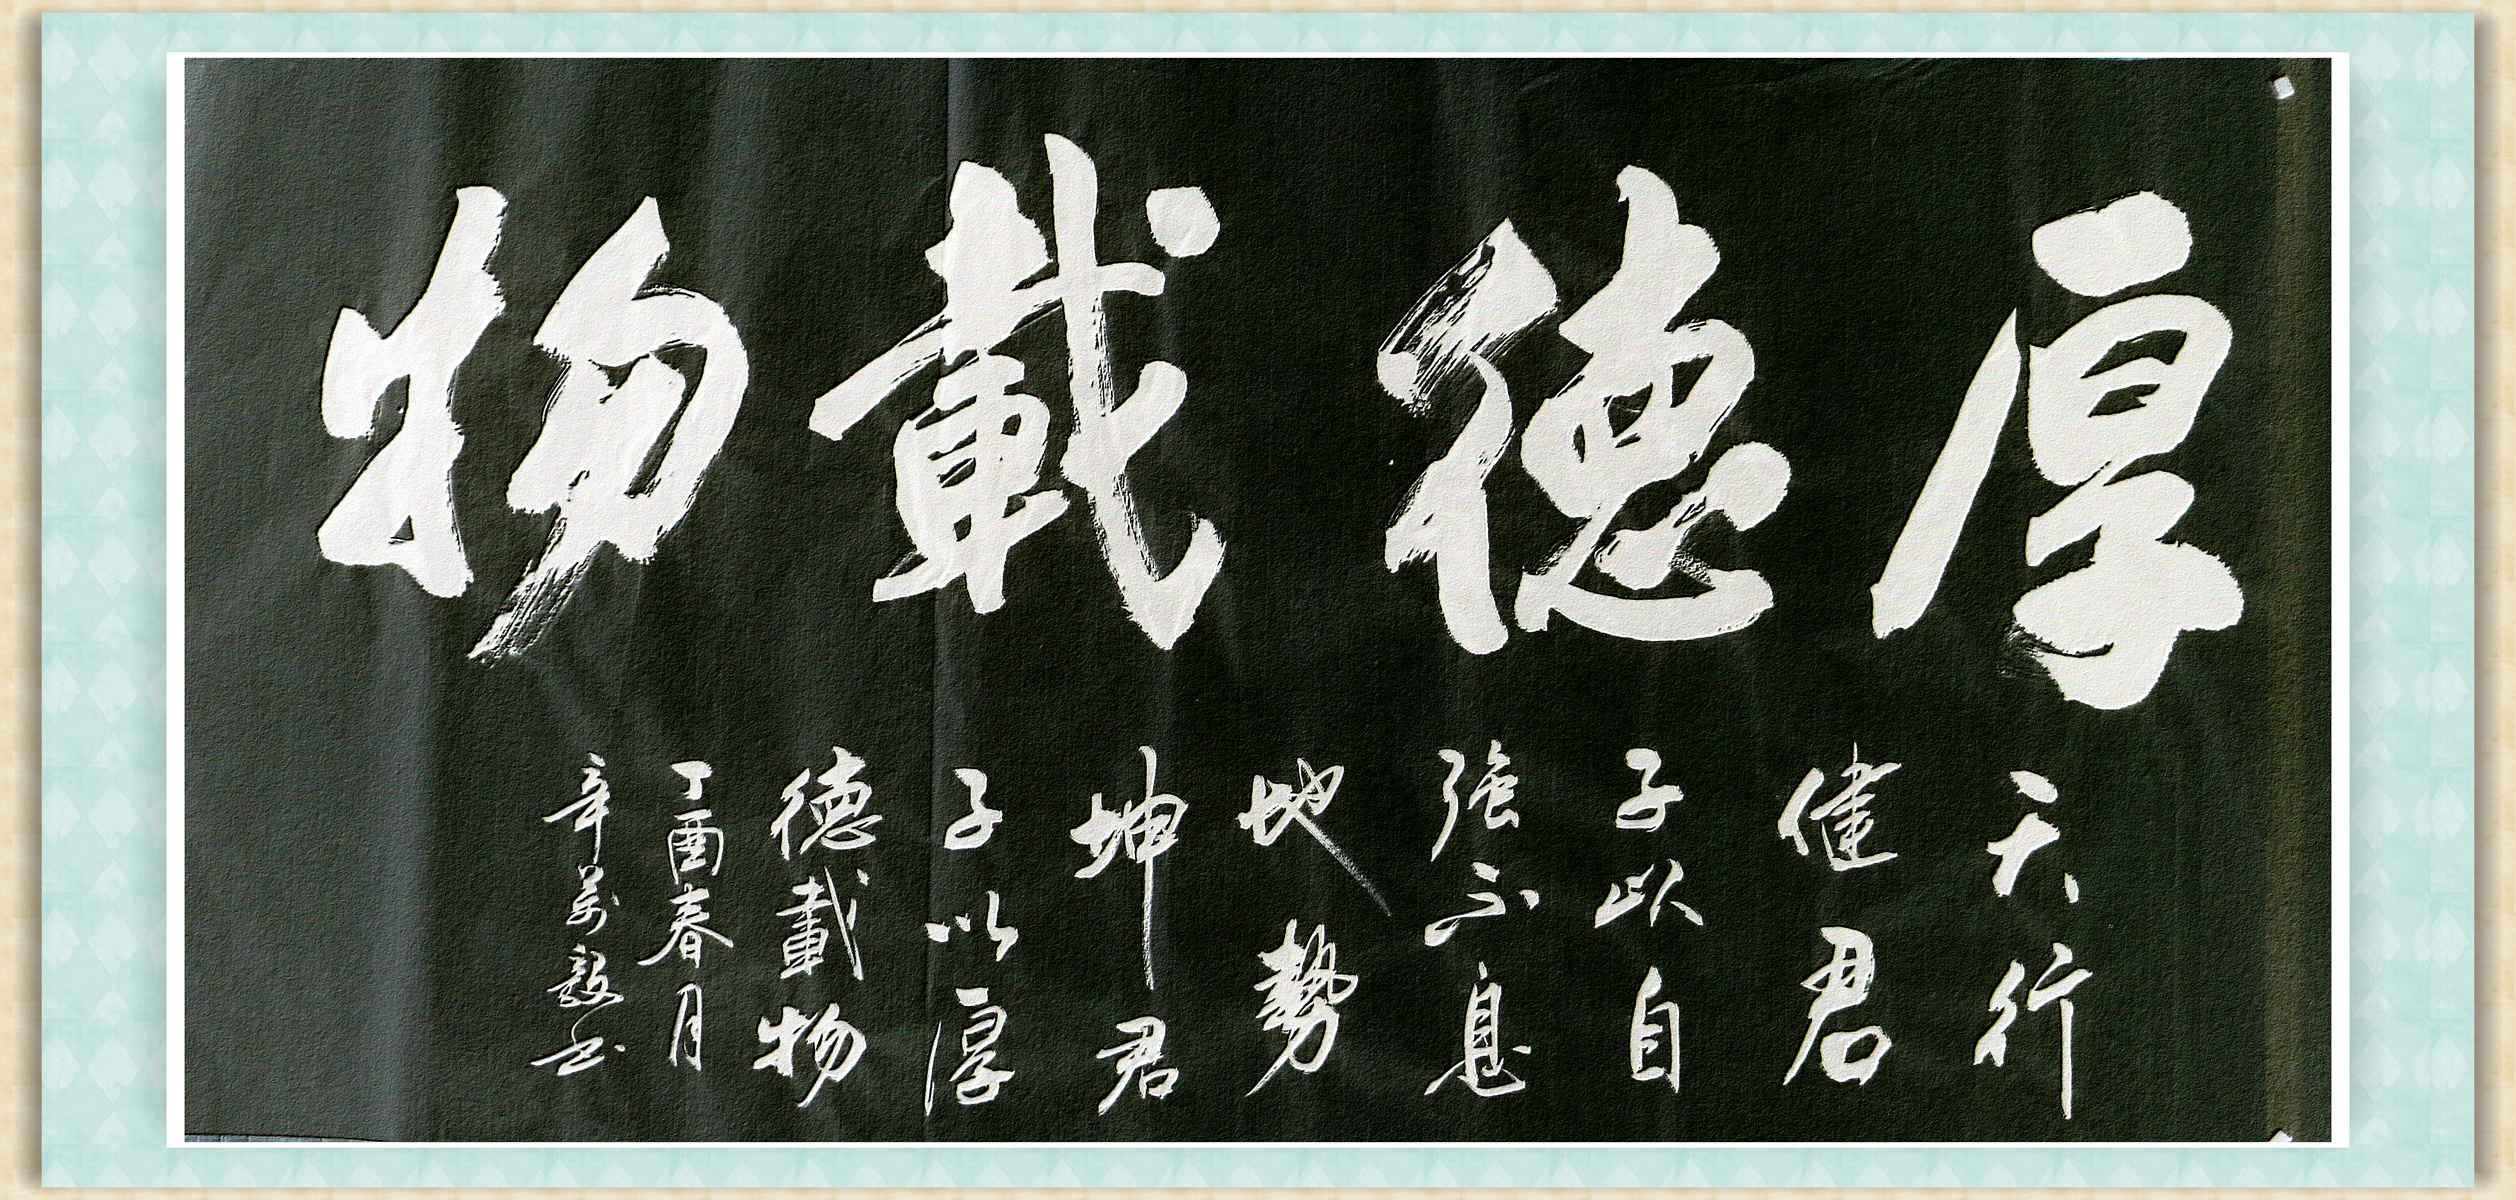 厚德載物
天行
健君
子以自
強不息
地勢
坤君
子以厚
德載物
丁酉春月
辛萬毅书